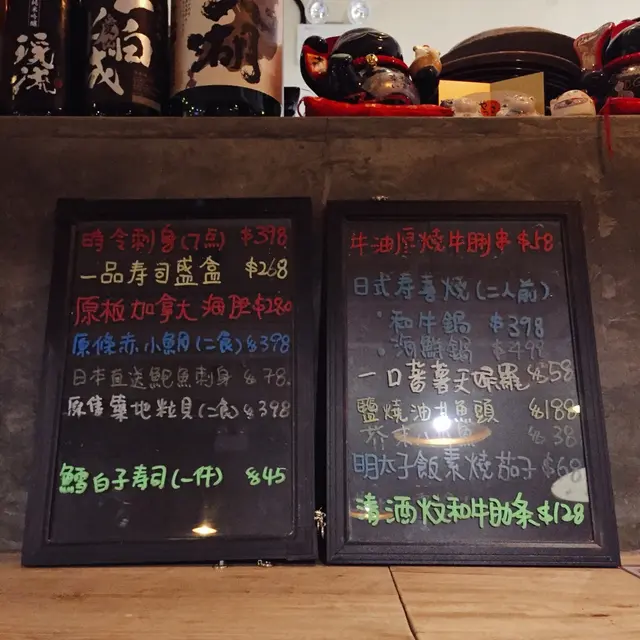 時令刺身(7点) $398
一品寿司盛盒 $268
原板加拿大海胆$280
原條赤小鯛(二食)$398
日本直送鮑魚刺身 $78
原隻築地粒貝(二食)$398
鱈白子寿司(一件) $45
牛油原燒牛脷串 $58
日式寿喜燒(二人前)
和牛鍋 $398
海鮮鍋 $498
一口蕃薯天婦羅 $58
鹽燒油甘魚頭 $188
$38
明太子飯素燒茄子 $68
清酒炆和牛肋条 $128